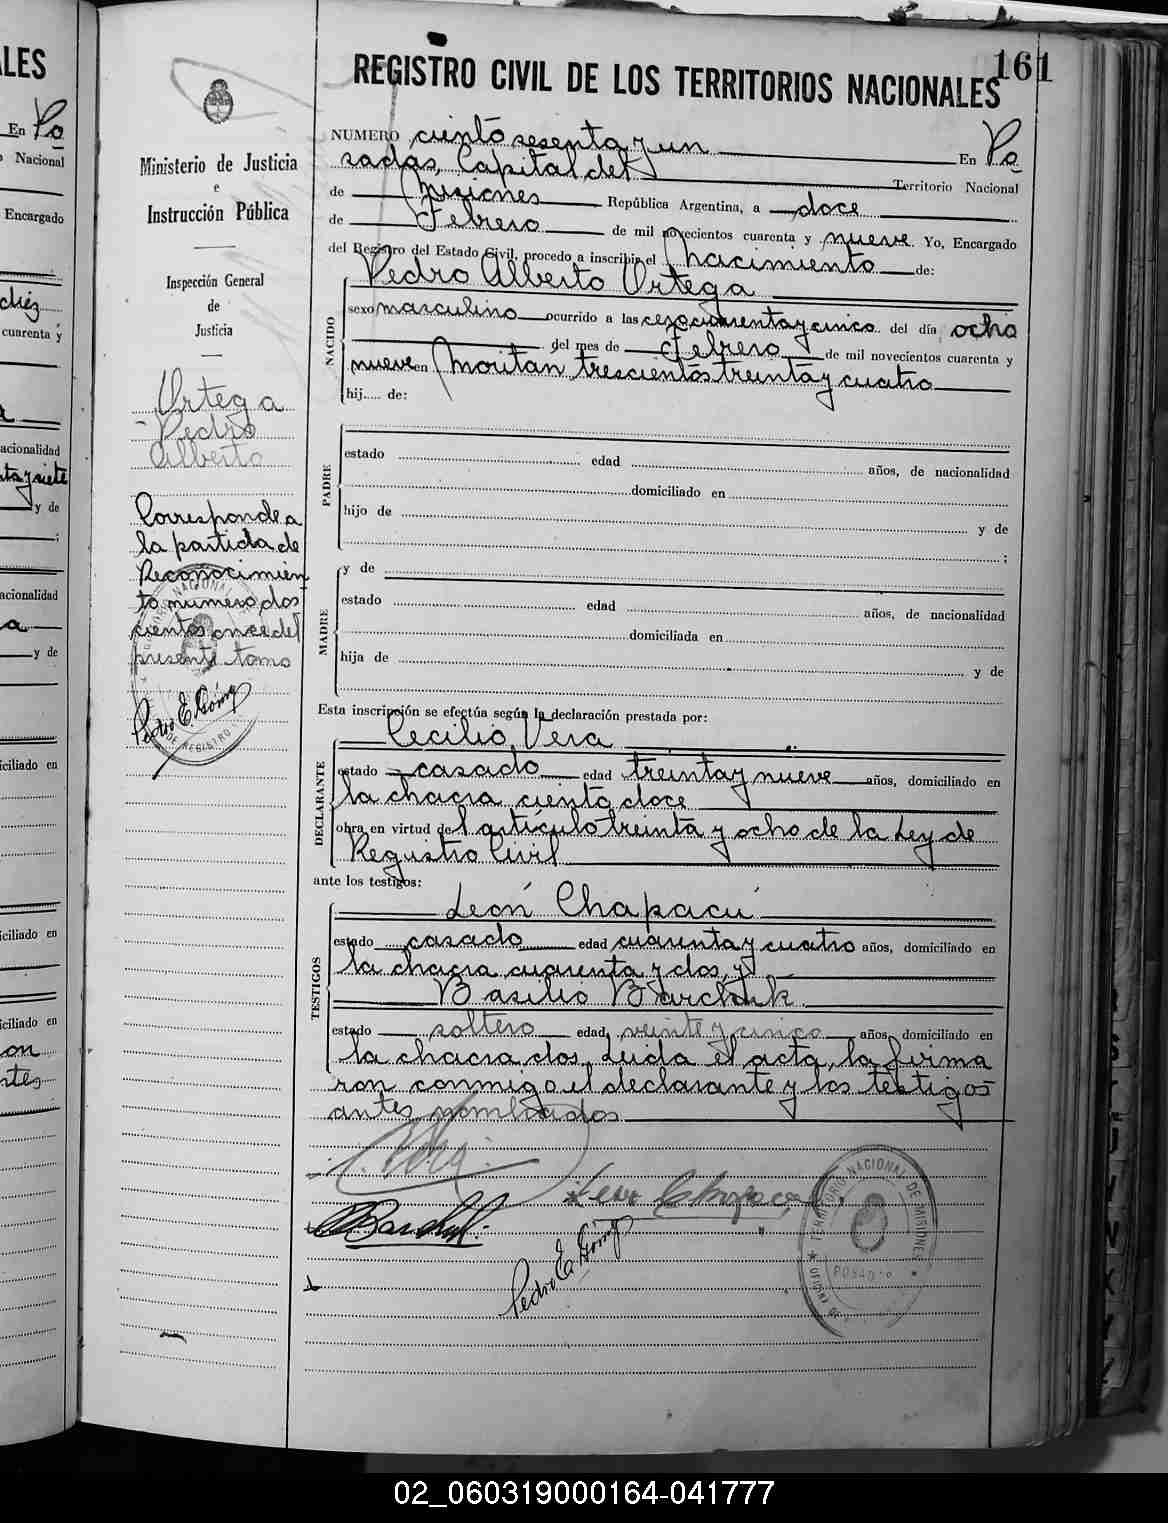 161
REGISTRO CIVIL DE LOS TERRITORIOS NACIONALES
Ministerio de Justicia
e
Instrucción Pública
Inspección General
de
Justicia
Ortega
Pedro
Alberto
Corresponde a
la partida de
Reconocimien
to numero dos
cientos once del
presente tomo
Pedro E. Gómez
NUMERO ciento sesenta y un En Po
sadas, Capital del Territorio Nacional
de Misiones República Argentina, a doce
de Febrero de mil novecientos cuarenta y nueve. Yo, Encargado
del Registro del Estado Civil, procedo a inscribir el nacimiento de:
Pedro Alberto Ortega
NACIDO
sexo masculino ocurrido a las cero cuarenta y cinco del día ocho
del mes de Febrero de mil novecientos cuarenta y
nueve en Moritan trescientos treinta y cuatro
hij..... de:
PADRE
estado edad años, de nacionalidad
domiciliado en
hijo de y de
;
MADRE
y de
estado edad años, de nacionalidad
domiciliada en
hija de y de
Esta inscripción se efectúa según la declaración prestada por:
Cecilio Vera
DECLARANTE
estado casado edad treinta y nueve años, domiciliado en
la chacra ciento doce
obra en virtud del artículo treinta y ocho de la Ley de
Registro Civil
ante los testigos:
León Chapacú
TESTIGOS
estado casado edad cuarenta y cuatro años, domiciliado en
la chacra cuarenta y dos, y
Basilio Barchuk
estado soltero edad veinte y cinco años, domiciliado en
la chacra dos. Leida el acta, la firma
ron conmigo el declarante y los testigos
antes nombrados
Leon Chapacu
Pedro E. Gómez
TERRITORIO NACIONAL DE MISIONES
POSADAS
02_060319000164-041777